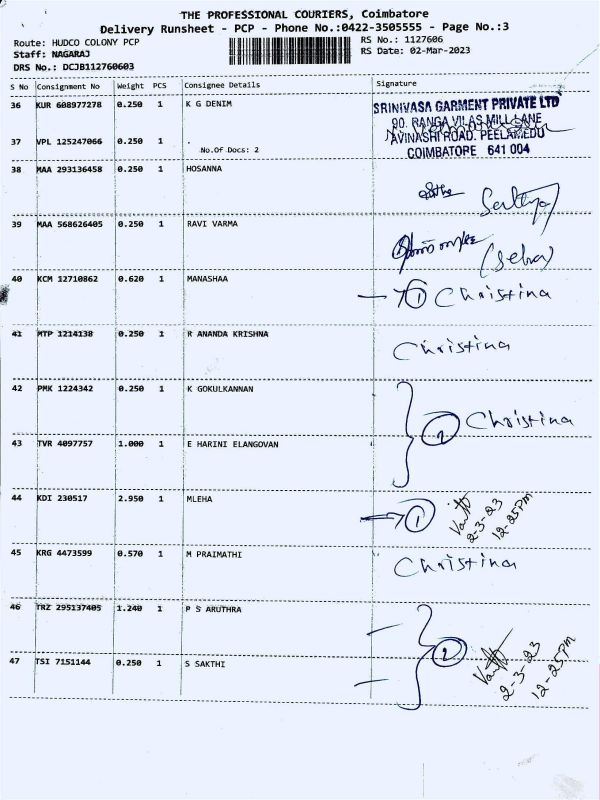 THE PROFESSIONAL COURIERS, Coimbatore
Delivery Runsheet - PCP - Phone No.:0422-3505555 - Page No.:3
Route: HUDCO COLONY PCP RS No.: 1127606
Staff: NAGARAJ RS Date: 02-Mar-2023
DRS No.: DCJB112760603
S No Consignment No Weight PCS Consignee Details Signature
36 KUR 608977278 0.250 1 K G DENIM
SRINIVASA GARMENT PRIVATE LTD
90. RANGA VILAS MILL LANE
AVINASHI ROAD. PEELAMEDU
COIMBATORE 641 004
37 VPL 125247066 0.250 1 .
No.Of Docs: 2
38 MAA 293136458 0.250 1 HOSANNA
39 MAA 568626405 0.250 1 RAVI VARMA
(Selva)
40 KCM 12710862 0.620 1 MANASHAA 1 Christina
41 MTP 1214138 0.250 1 R ANANDA KRISHNA Christina
42 PMK 1224342 0.250 1 K GOKULKANNAN
2 Christina
43 TVR 4097757 1.000 1 E HARINI ELANGOVAN
44 KDI 230517 2.950 1 MLEHA 1 2-3-23 12-25pm
45 KRG 4473599 0.570 1 M PRAIMATHI Christina
46 TRZ 295137405 1.240 1 P S ARUTHRA
2 2-3-23 12-25pm
47 TSI 7151144 0.250 1 S SAKTHI